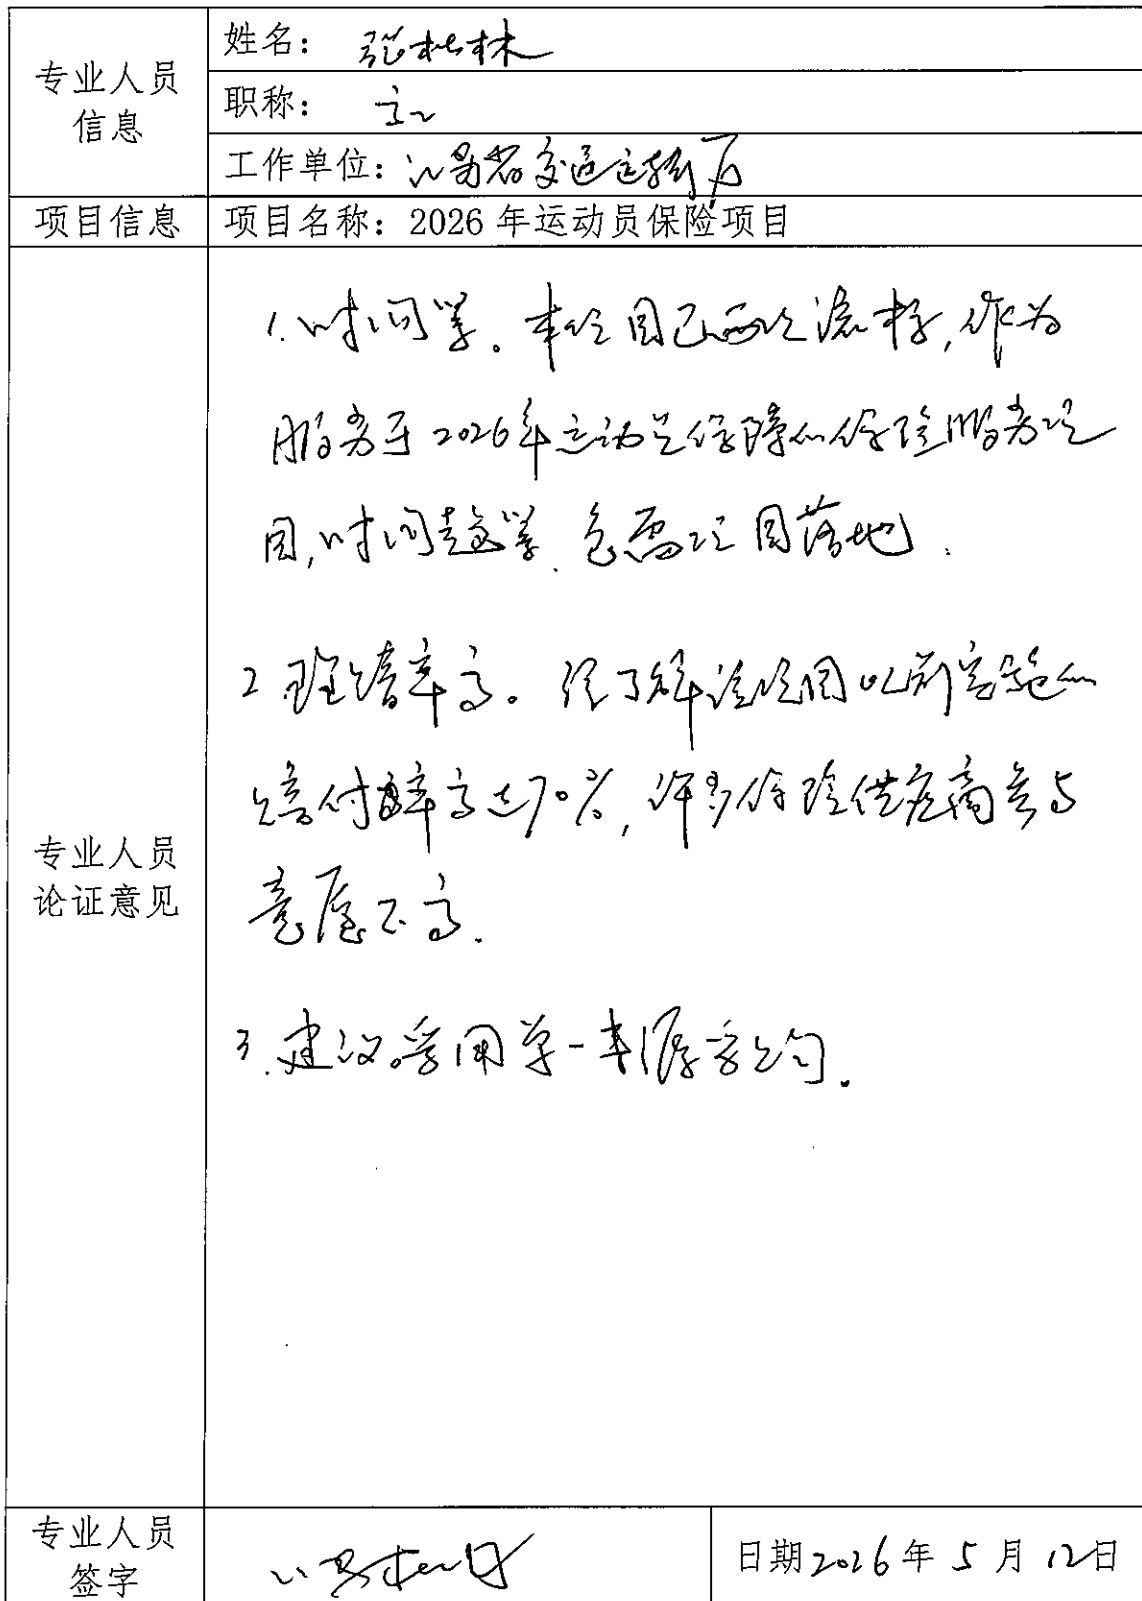 专业人员
信息
姓名：张林
职称：高工
工作单位：江苏省交通运输厅
项目信息
项目名称：2026年运动员保险项目
专业人员
论证意见
1.时间紧。本项目已两次流标，作为
服务于2026年运动员保障的保险服务项
目，时间超紧，急需项目落地.
2 理赔率高。经了解该项目以前实施的
赔付率高达70%，许多保险供应商参与
意愿不高.
3.建议采用单一来源采购.
专业人员
签字
日期2026年5月12日